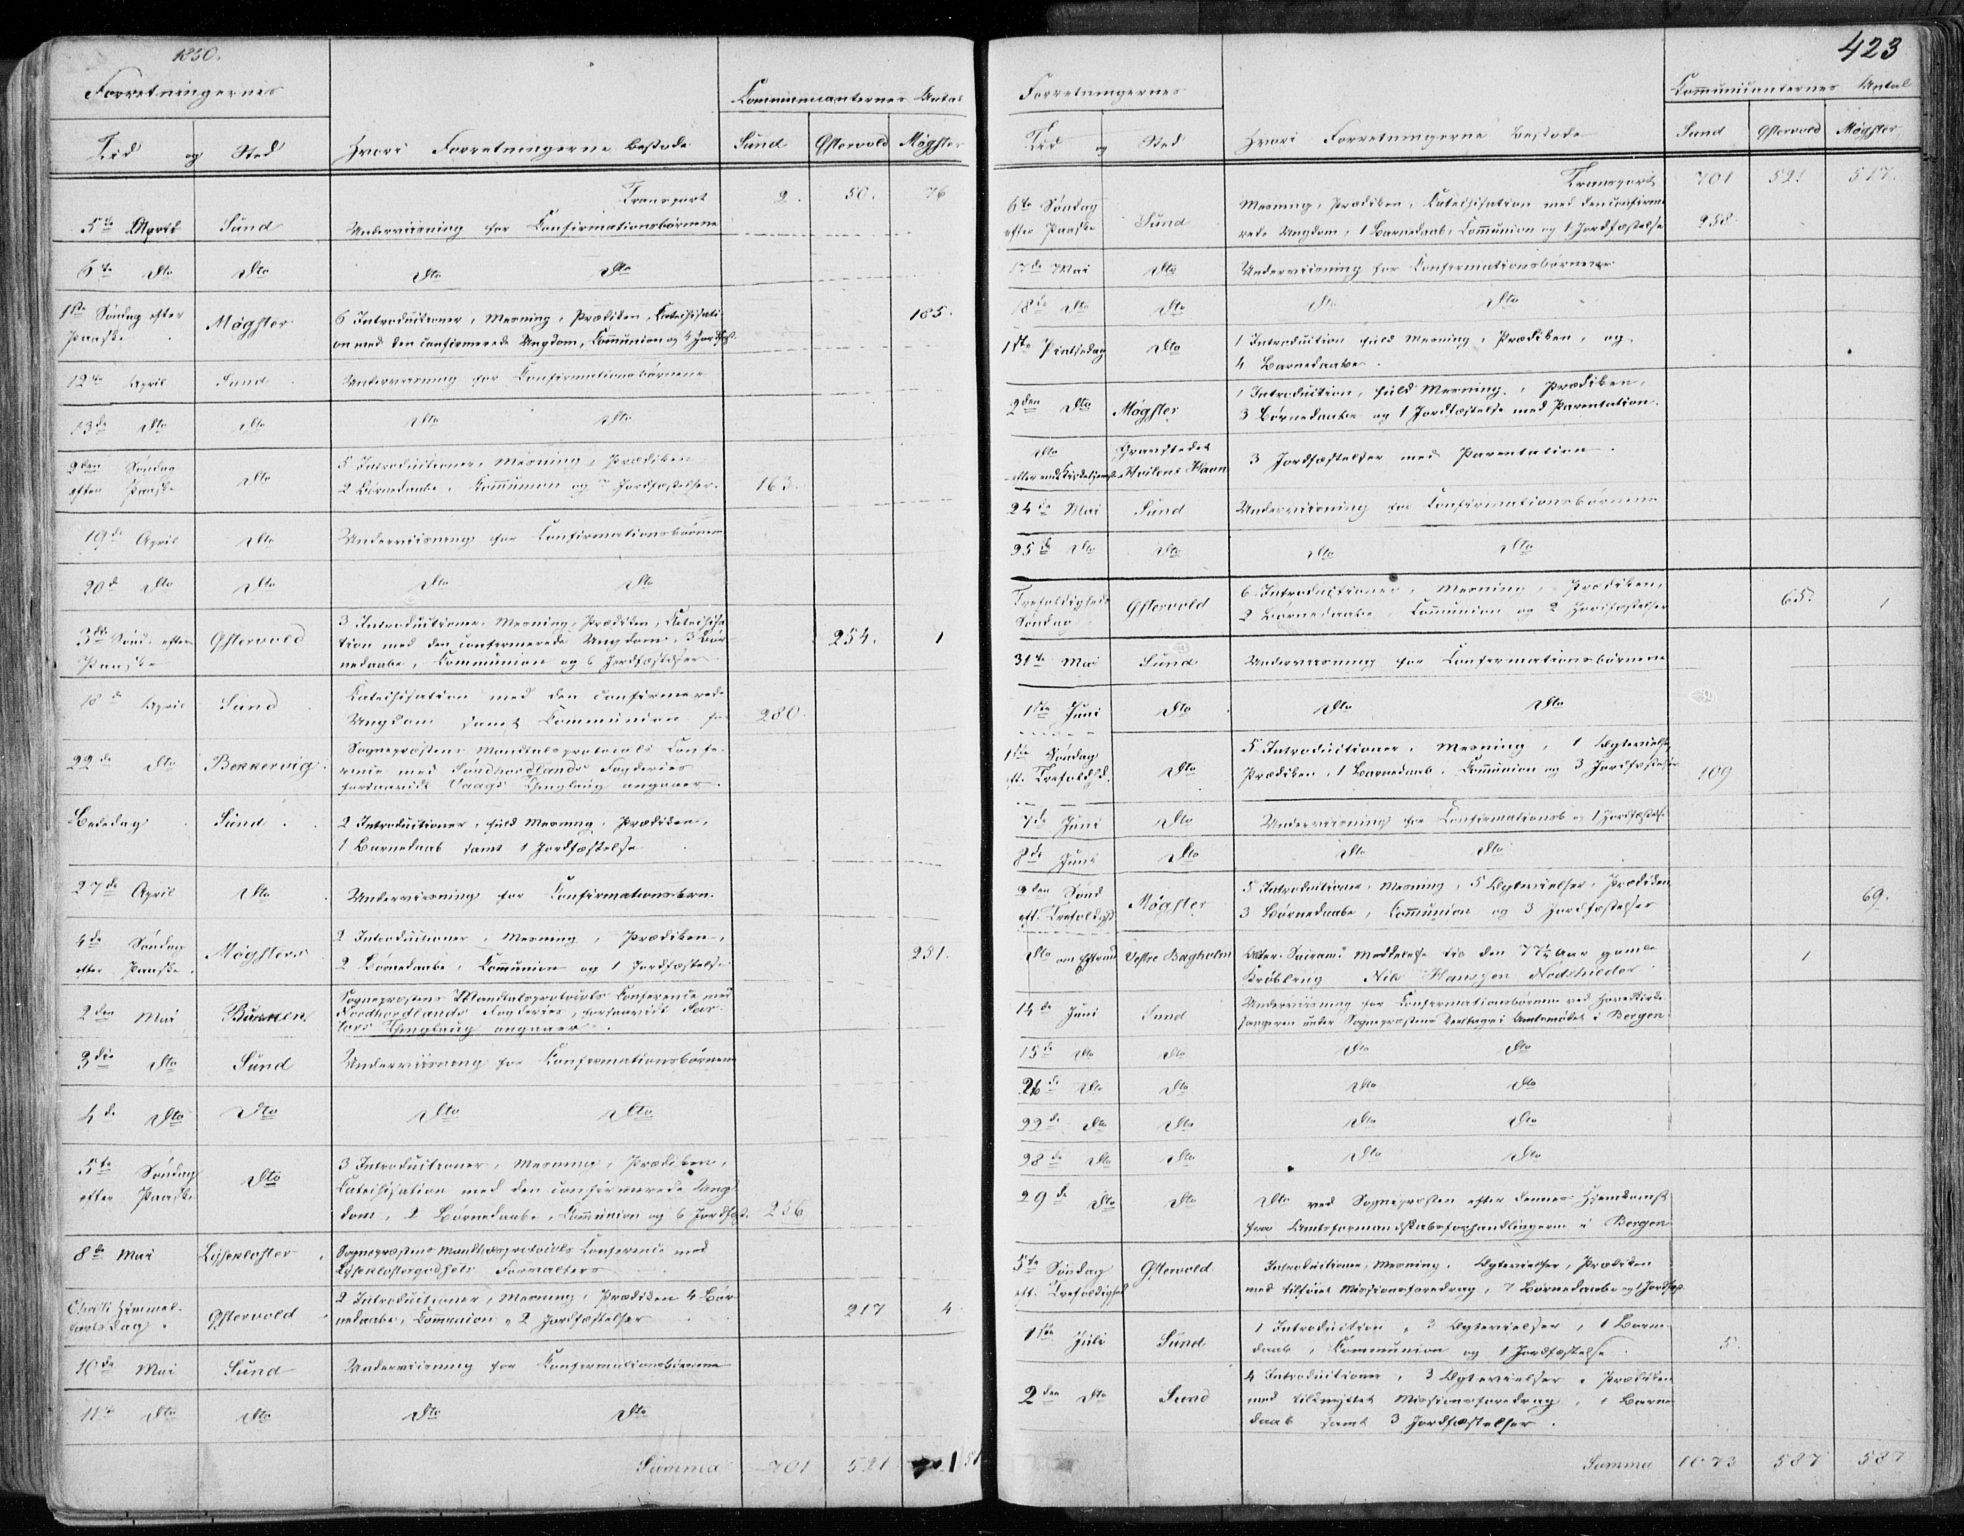 1850.
Forretningernes
Communicanternes Antal
Tid og Sted
Hvori Forretningerne bestode
Sund Østervold Møgster
Transport 2. 50. 76
5te April Sund Underviisning for Confirmationsbørnene
6te Dto Dto Dto Dto
1ste Søndag efter
Paaske
Møgster
6 Introductioner, Messning, Prædiken, Catechisati-
on med den confirmerede Ungdom, Communion og 4 Jordfæst.
185.
12te April Sund Underviisning for Confirmationsbørnene
13de Dto Dto Dto Dto
2den Søndag
efter Paaske
Dto
5 Introductioner, Messning, Prædiken
2 Børnedaabe, Communion og 7 Jordfæstelser.
163.
19de April Dto Underviisning for Confirmationsbørnene
20de Dto Dto Dto Dto
3die Sønd. efter
Paaske
Østervold
3 Introductione, Messning, Prædiken, Catechisa-
tion med den confirmerede Ungdom, 3 Bør-
nedaabe, Communion og 6 Jordfæstelser
254. 1
18de April Sund
Catechisation med den confirmerede
Ungdom samt Communion for
280.
22de Dto Bekkervig.
Sognepræstens Mandtalsprotocols Confe-
rence med Søndhordlands Fogderies
forsaavidt Vaags Thinglaug angaaer.
Bededag Sund.
2 Introductioner, fuld Messning, Prædiken,
1 Barnedaab samt 1 Jordfæstelse
27de April Dto Underviisning for Confirmationsbrn.
4de Søndag
efter Paaske.
Møgster
2 Introductioner, Messning, Prædiken,
2 Børnedaabe, Communion og 1 Jordfæstelse
231.
2den Mai
Sognepræstens Mandtalsprotocols Conference med
Nordhordlands Fogderies, forsaavidt
Thinglaug angaaer.
3die Dto Sund Underviisning for Confirmationsbørnene
4de Dto Dto Dto Dto
5te Søndag
efter Paaske
Dto
3 Introductioner, Messning, Prædiken,
Catechisation med den confirmerede Ung-
dom, 2 Børnedaabe, Communion og 6 Jordfæst.
256
8de Mai Lysekloster
Sognepræstens Mandtalsprotocols Conference med
Lyseklostergodsets Forvalters
Christi Himmel-
farts Dag.
Østervold
2 Introductioner, Messning, Prædiken 4 Bør-
nedaabe, Communion, 2 Jordfæstelser
217 4
10de Mai Sund Underviisning for Confirmationsbørnene
11te Dto Dto Dto Dto
Summa 701 521
423
Forretningernes
Communicanternes Antal
Tid og Sted
Hvori Forretningerne bestode
Sund Østervold Møgster
Transport 701 521 517.
6te Søndag
efter Paaske
Sund
Messning, Prædiken, Catechisation med den confirme-
rede Ungdom, 1 Barnedaab, Communion og 1 Jordfæstelse
258.
17de Mai Dto Underviisning for Confirmationsbørnene
18de Dto Dto Dto Dto
1ste Pintsedag Dto
1 Introduction fuld Messning, Prædiken, og
4 Barnedaabe.
2den Dto Møgster
1 Introduction, fuld Messning, Prædiken,
3 Børnedaabe og 1 Jordfæstelse med Parentation.
Dto
Havn
3 Jordfæstelser med Parentation.
24de Mai Sund Underviisning for Confirmationsbørnene
25de Dto Dto Dto Dto
Trefoldigheds
Søndag
Østervold
6 Introductioner, Messning, Prædiken,
2 Børnedaabe, Communion og 2 Jordfæstelser
65. 1
31te Mai Sund Underviisning for Confirmationsbørnene
1ste Juni Dto Dto Dto
1ste Søndag
eft. Trefoldhd.
Dto
5 Introductioner, Messning, 1 Ægtevielse,
Prædiken, 1 Barnedaab, Communion og 3 Jordfæstelser
109
7de Juni Dto Underviisning for Confirmationsb og 1 Jordfæstelse
8de Juni Dto Dto Dto
2den Sønd
eft. Trefoldhd
Møgster
5 Introductioner, Messning, 5 Ægtevielser, Prædiken,
3 Børnedaabe, Communion og 3 Jordfæstelser
69.
Dto om Eftmd Vestre Bagholm
Alter Sacram. Meddelelse til den 77½ Aar gamle
Krøbling Nils Hanssen
1
14de Juni Sund
Underviisning for Confirmationsbørnene ved Hovedkirke-
sangeren under Sognepræstens i Amtsmødet i Bergen
15de Dto Dto Dto Dto
26de Dto Dto Dto Dto
22de Dto Dto Dto Dto
28de Dto Dto Dto Dto
29de Dto Dto
Dto ved Sognepræsten efter dennes Hjemkomst
fra Amtsformandskabsforhandlingerne i Bergen
5te Søndag
eft. Trefoldighed
Østervold
Introductione, Messning, Ægtevielser, Prædiken
med tilføiet Missionsforedrag, 7 Børnedaabe og 1 Jordfæst
1ste Juli Sund
1 Introduction, 3 Ægtevielser, 1 Barne-
daab, Communion og 1 Jordfæstelse.
5.
2den Dto Sund
4 Introductioner, 3 Ægtevielser, Prædiken
med tilknyttet Missionsforedrag, 1 Barne-
daab samt 3 Jordfæstelser.
Summa 1073 587 587